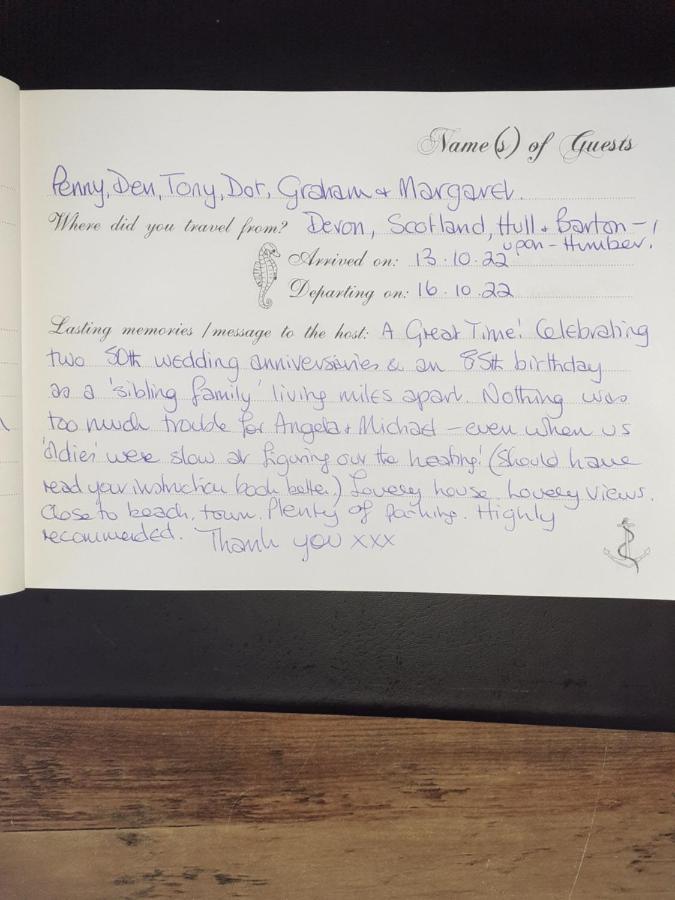 Name(s) of Guests
Penny, Den, Tony, Dot, Graham & Margaret.
Where did you travel from? Devon, Scotland, Hull & Barton -
upon - Humber.
Arrived on: 13.10.22
Departing on: 16.10.22
Lasting memories / message to the host: A Great Time! Celebrating
two 50th wedding anniversaries & an 85th birthday
as a 'sibling family' living miles apart. Nothing was
too much trouble for Angela & Michael - even when us
'oldies' were slow at figuring out the heating! (Should have
read your instruction book better.) Lovely house. Lovely views.
Close to beach, town. Plenty of parking. Highly
recommended. Thank you xxx